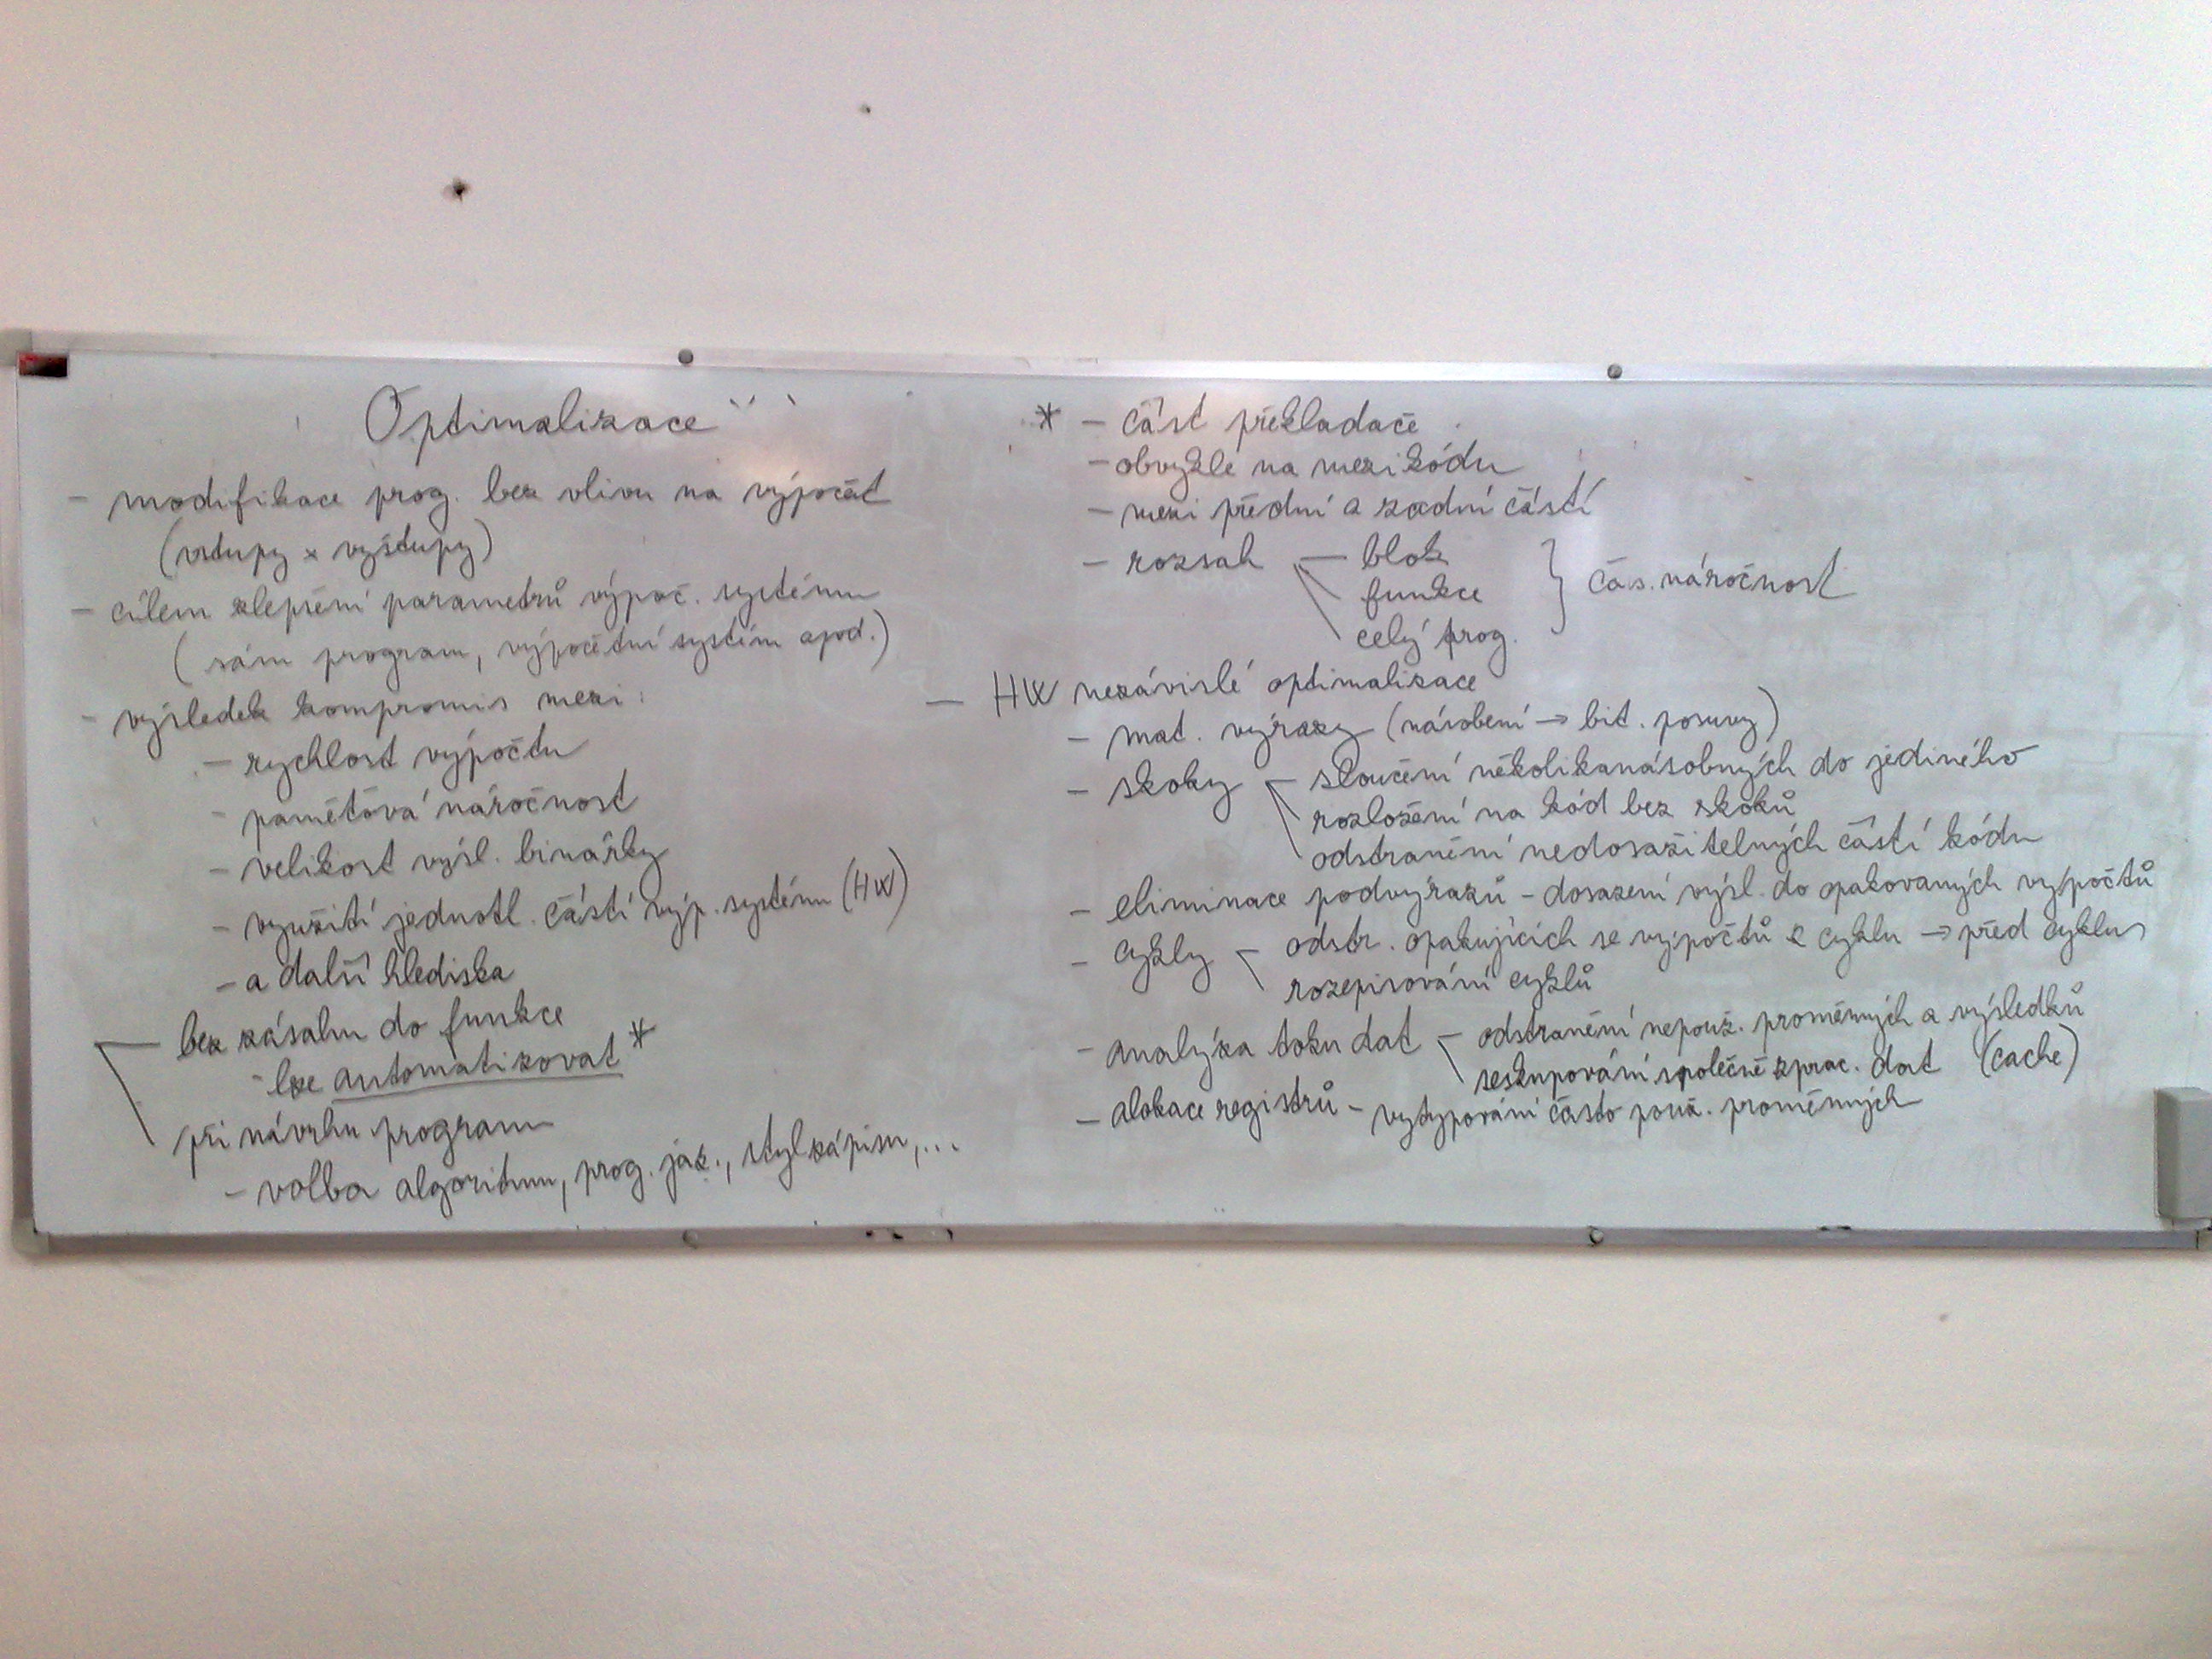 Optimalizace
- modifikace prog. bez vlivu na výpočet
(vstupy × výstupy)
- cílem zlepšení parametrů výpoč. systému
(sám program, výpočetní systém apod.)
- výsledek kompromis mezi:
- rychlost výpočtu
- paměťová náročnost
- velikost výsl. binárky
- využití jednotl. částí výp. systému (HW)
- a další hlediska
bez zásahu do funkce
- lze automatizovat *
při návrhu program
- volba algoritmu, prog. jaz., styl zápisu, ...
* - část překladače
- obvykle na mezikódu
- mezi přední a zadní částí
- rozsah - blok
funkce
celý prog.
} čas. náročnost
- HW nezávislé optimalizace
- mat. výrazy (násobení → bit. posuvy)
- skoky - sloučení několikanásobných do jediného
rozložení na kód bez skoků
odstranění nedosažitelných částí kódu
- eliminace podvýrazů - dosazení výsl. do opakovaných výpočtů
- cykly - odstr. opakujících se výpočtů z cyklu → před cyklus
rozepisování cyklů
- analýza toku dat - odstranění nepouž. proměnných a výsledků
seskupování společně zprac. dat (cache)
- alokace registrů - vytypování často použ. proměnných